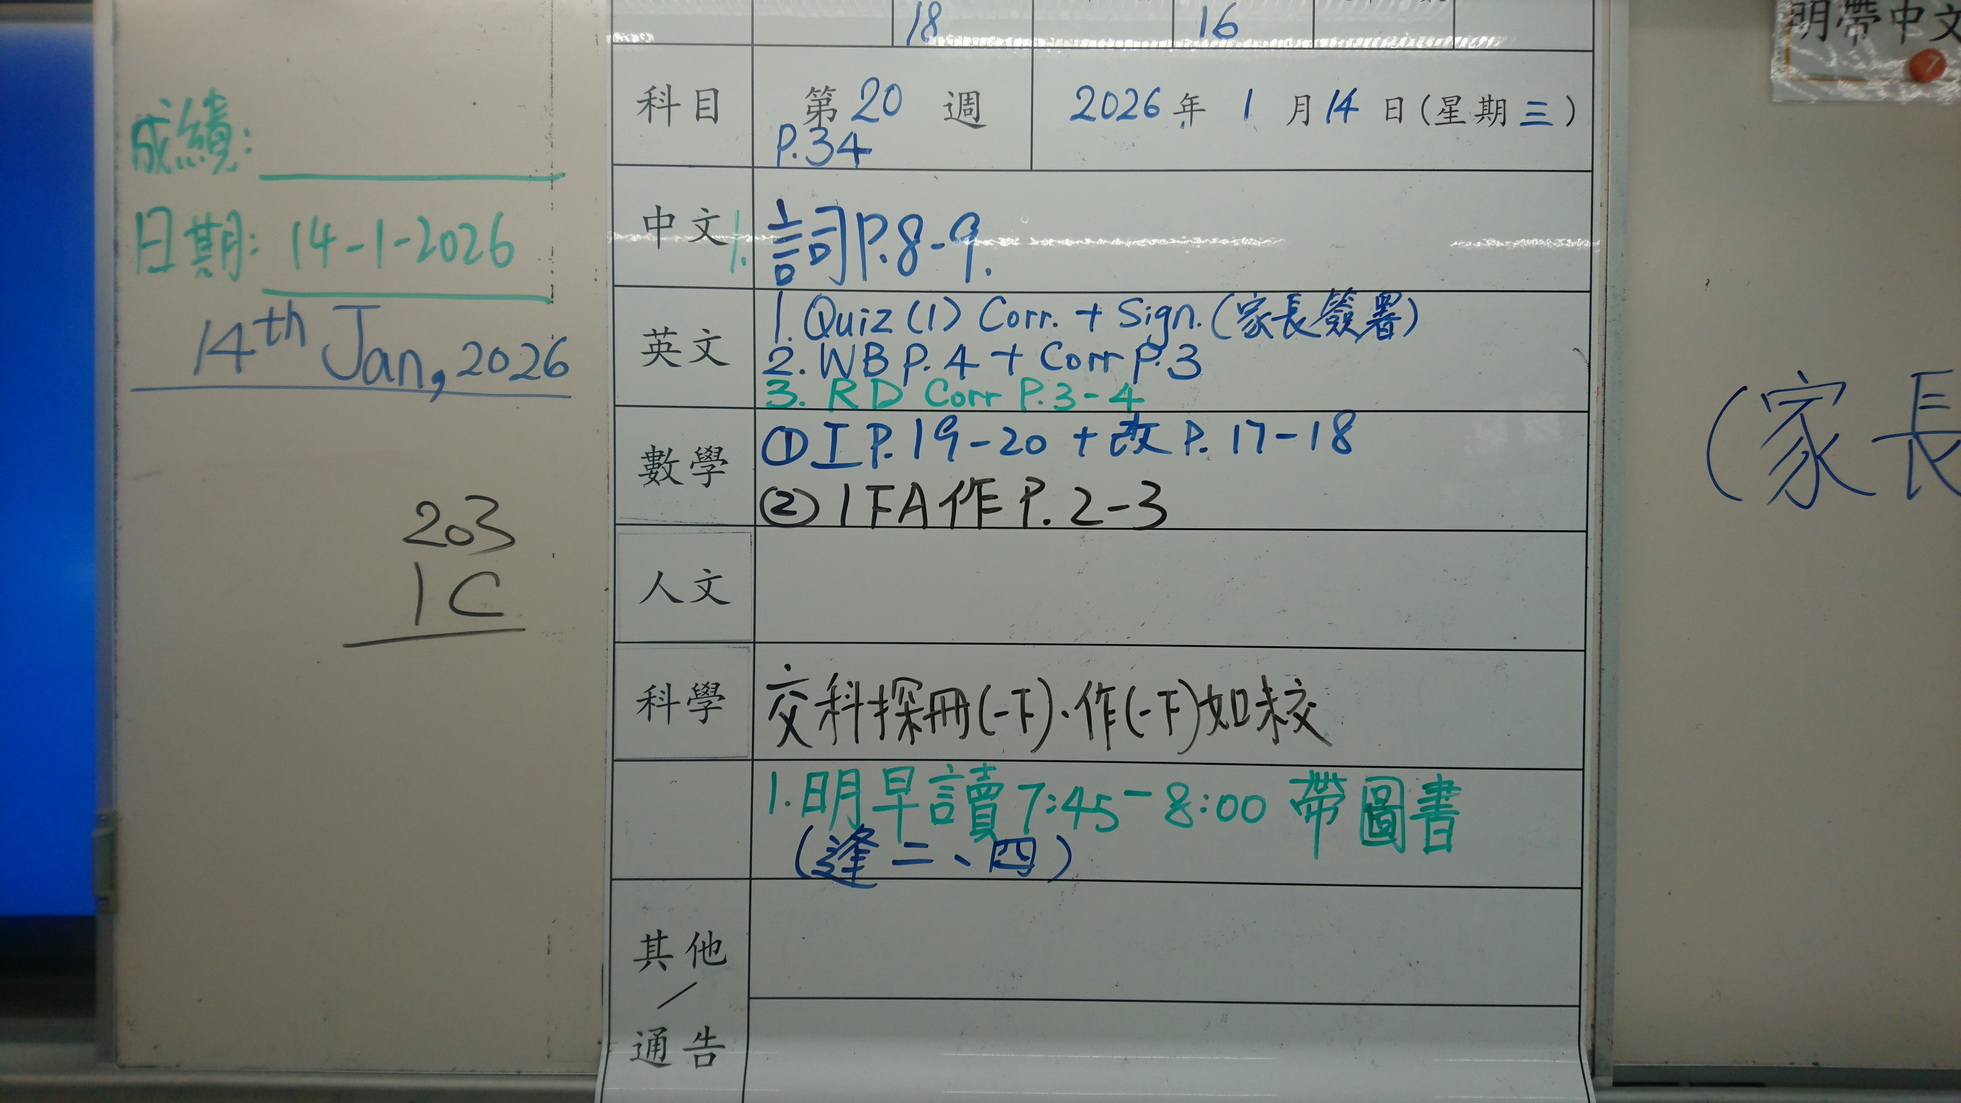 明帶中文
18
16
科目
第20週
P.34
2026年1月14日(星期三)
成績:
日期: 14-1-2026
14th Jan, 2026
203
1C
中文
1. 詞P.8-9.
英文
1. Quiz (1) Corr. + Sign. (家長簽署)
2. WB P.4 + Corr P.3
3. RD Corr P.3-4
數學
①工P.19-20 + 改P.17-18
② 1FA作P.2-3
人文
科學
交科探冊(一下)、作(一下)如未交
1. 明早讀7:45-8:00 帶圖書
(逢二、四)
其他
/
通告
(家長